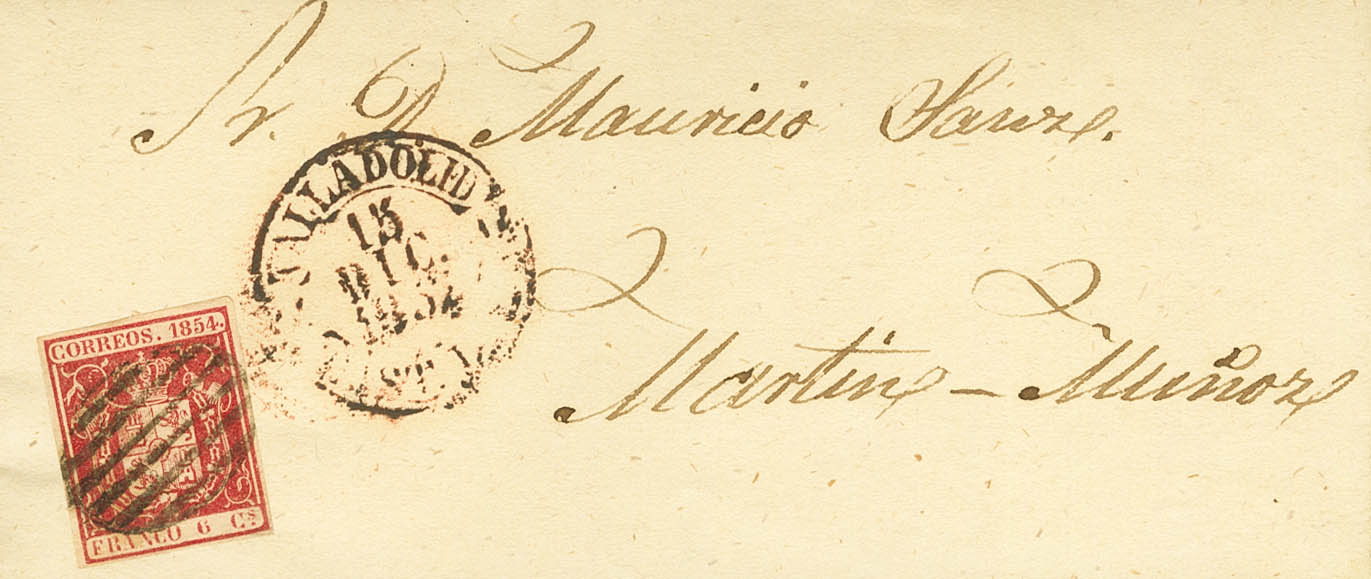 Sr. D. Mauricio Sainz.
VALLADOLID
13
DIC.
1854
Martin - Muñoz
CORREOS. 1854.
FRANCO 6 Cs